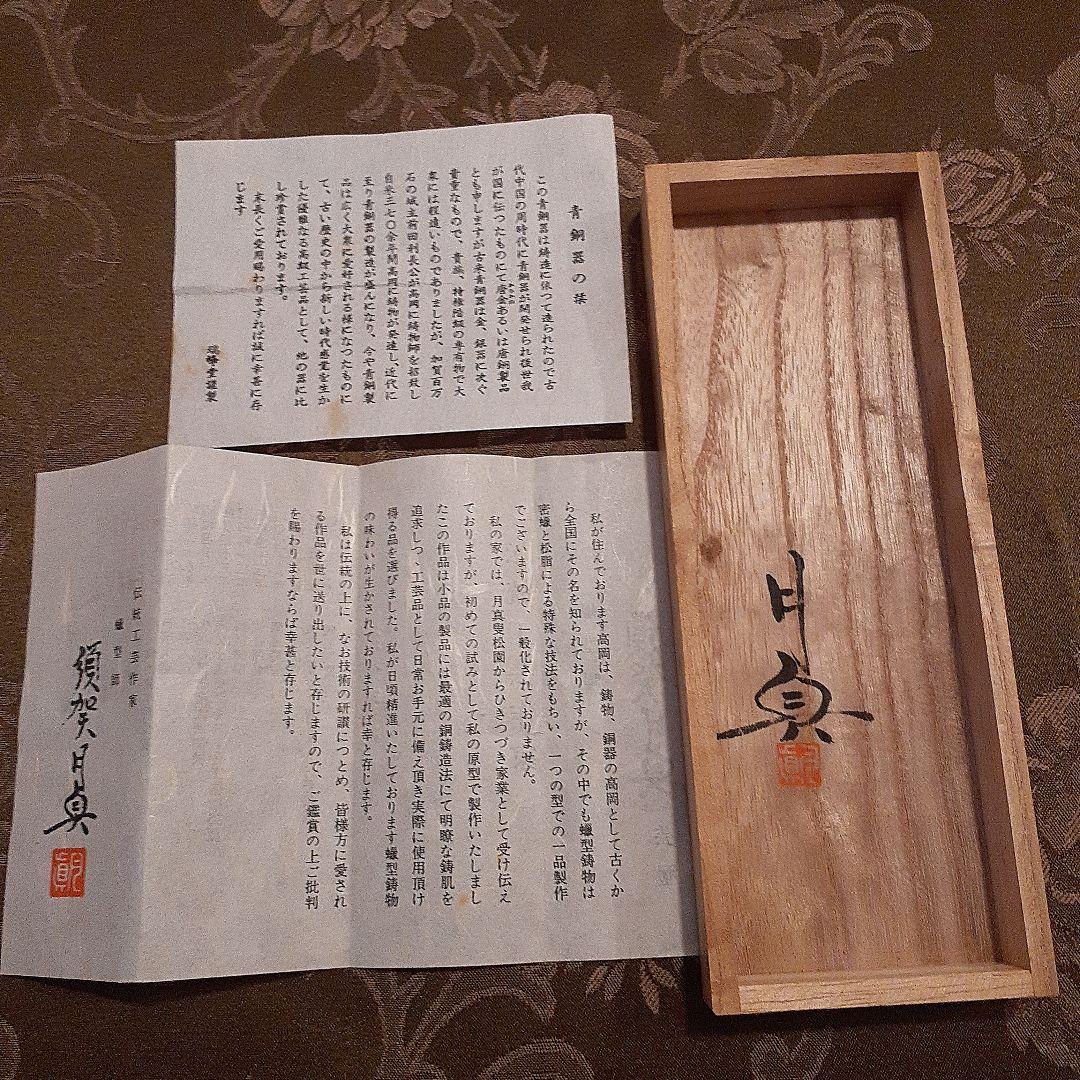 青銅器の栞
この青銅器は鋳造に依つて造られたので古
代中国の周時代に青銅器が開発せられ後世我
が国に伝つたものにて唐金あるいは唐銅製品
とも申しますが古来青銅器は金、銀器に次ぐ
貴重なもので、貴族、特権階級の専有物で大
衆には程遠いものでありましたが、加賀百万
石の城主前田利長公が高岡に鋳物師を招致し
自来三七〇余年間高岡に鋳物が発達し、近代に
至り青銅器の製造が盛んになり、今や青銅製
品は広く大衆に愛好される様になつたものに
て、古い歴史の中から新しい時代感覚を生か
した優雅なる高級工芸品として、他の器に比
し珍賞されております。
末長くご愛用賜わりますれば誠に幸甚に存
じます
瑞峰堂謹製
私が住んでおります高岡は、鋳物、銅器の高岡として古くか
ら全国にその名を知られておりますが、その中でも蠟型鋳物は
密蠟と松脂による特殊な技法をもちい、一つの型での一品製作
でございますので、一般化されておりません。
私の家では、月真叟松園からひきつづき家業として受け伝え
ておりますが、初めての試みとして私の原型で製作いたしまし
たこの作品は小品の製品には最適の銅鋳造法にて明瞭な鋳肌を
追求しつゝ工芸品として日常お手元に備え頂き実際に使用頂け
得る品を選びました。私が日頃精進いたしております蠟型鋳物
の味わいが生かされておりますれば幸と存じます。
私は伝統の上に、なお技術の研讃につとめ、皆様方に愛され
る作品を世に送り出したいと存じますので、ご鑑賞の上ご批判
を賜わりますならば幸甚と存じます。
伝統工芸作家
蠟型師
須賀月真
月真